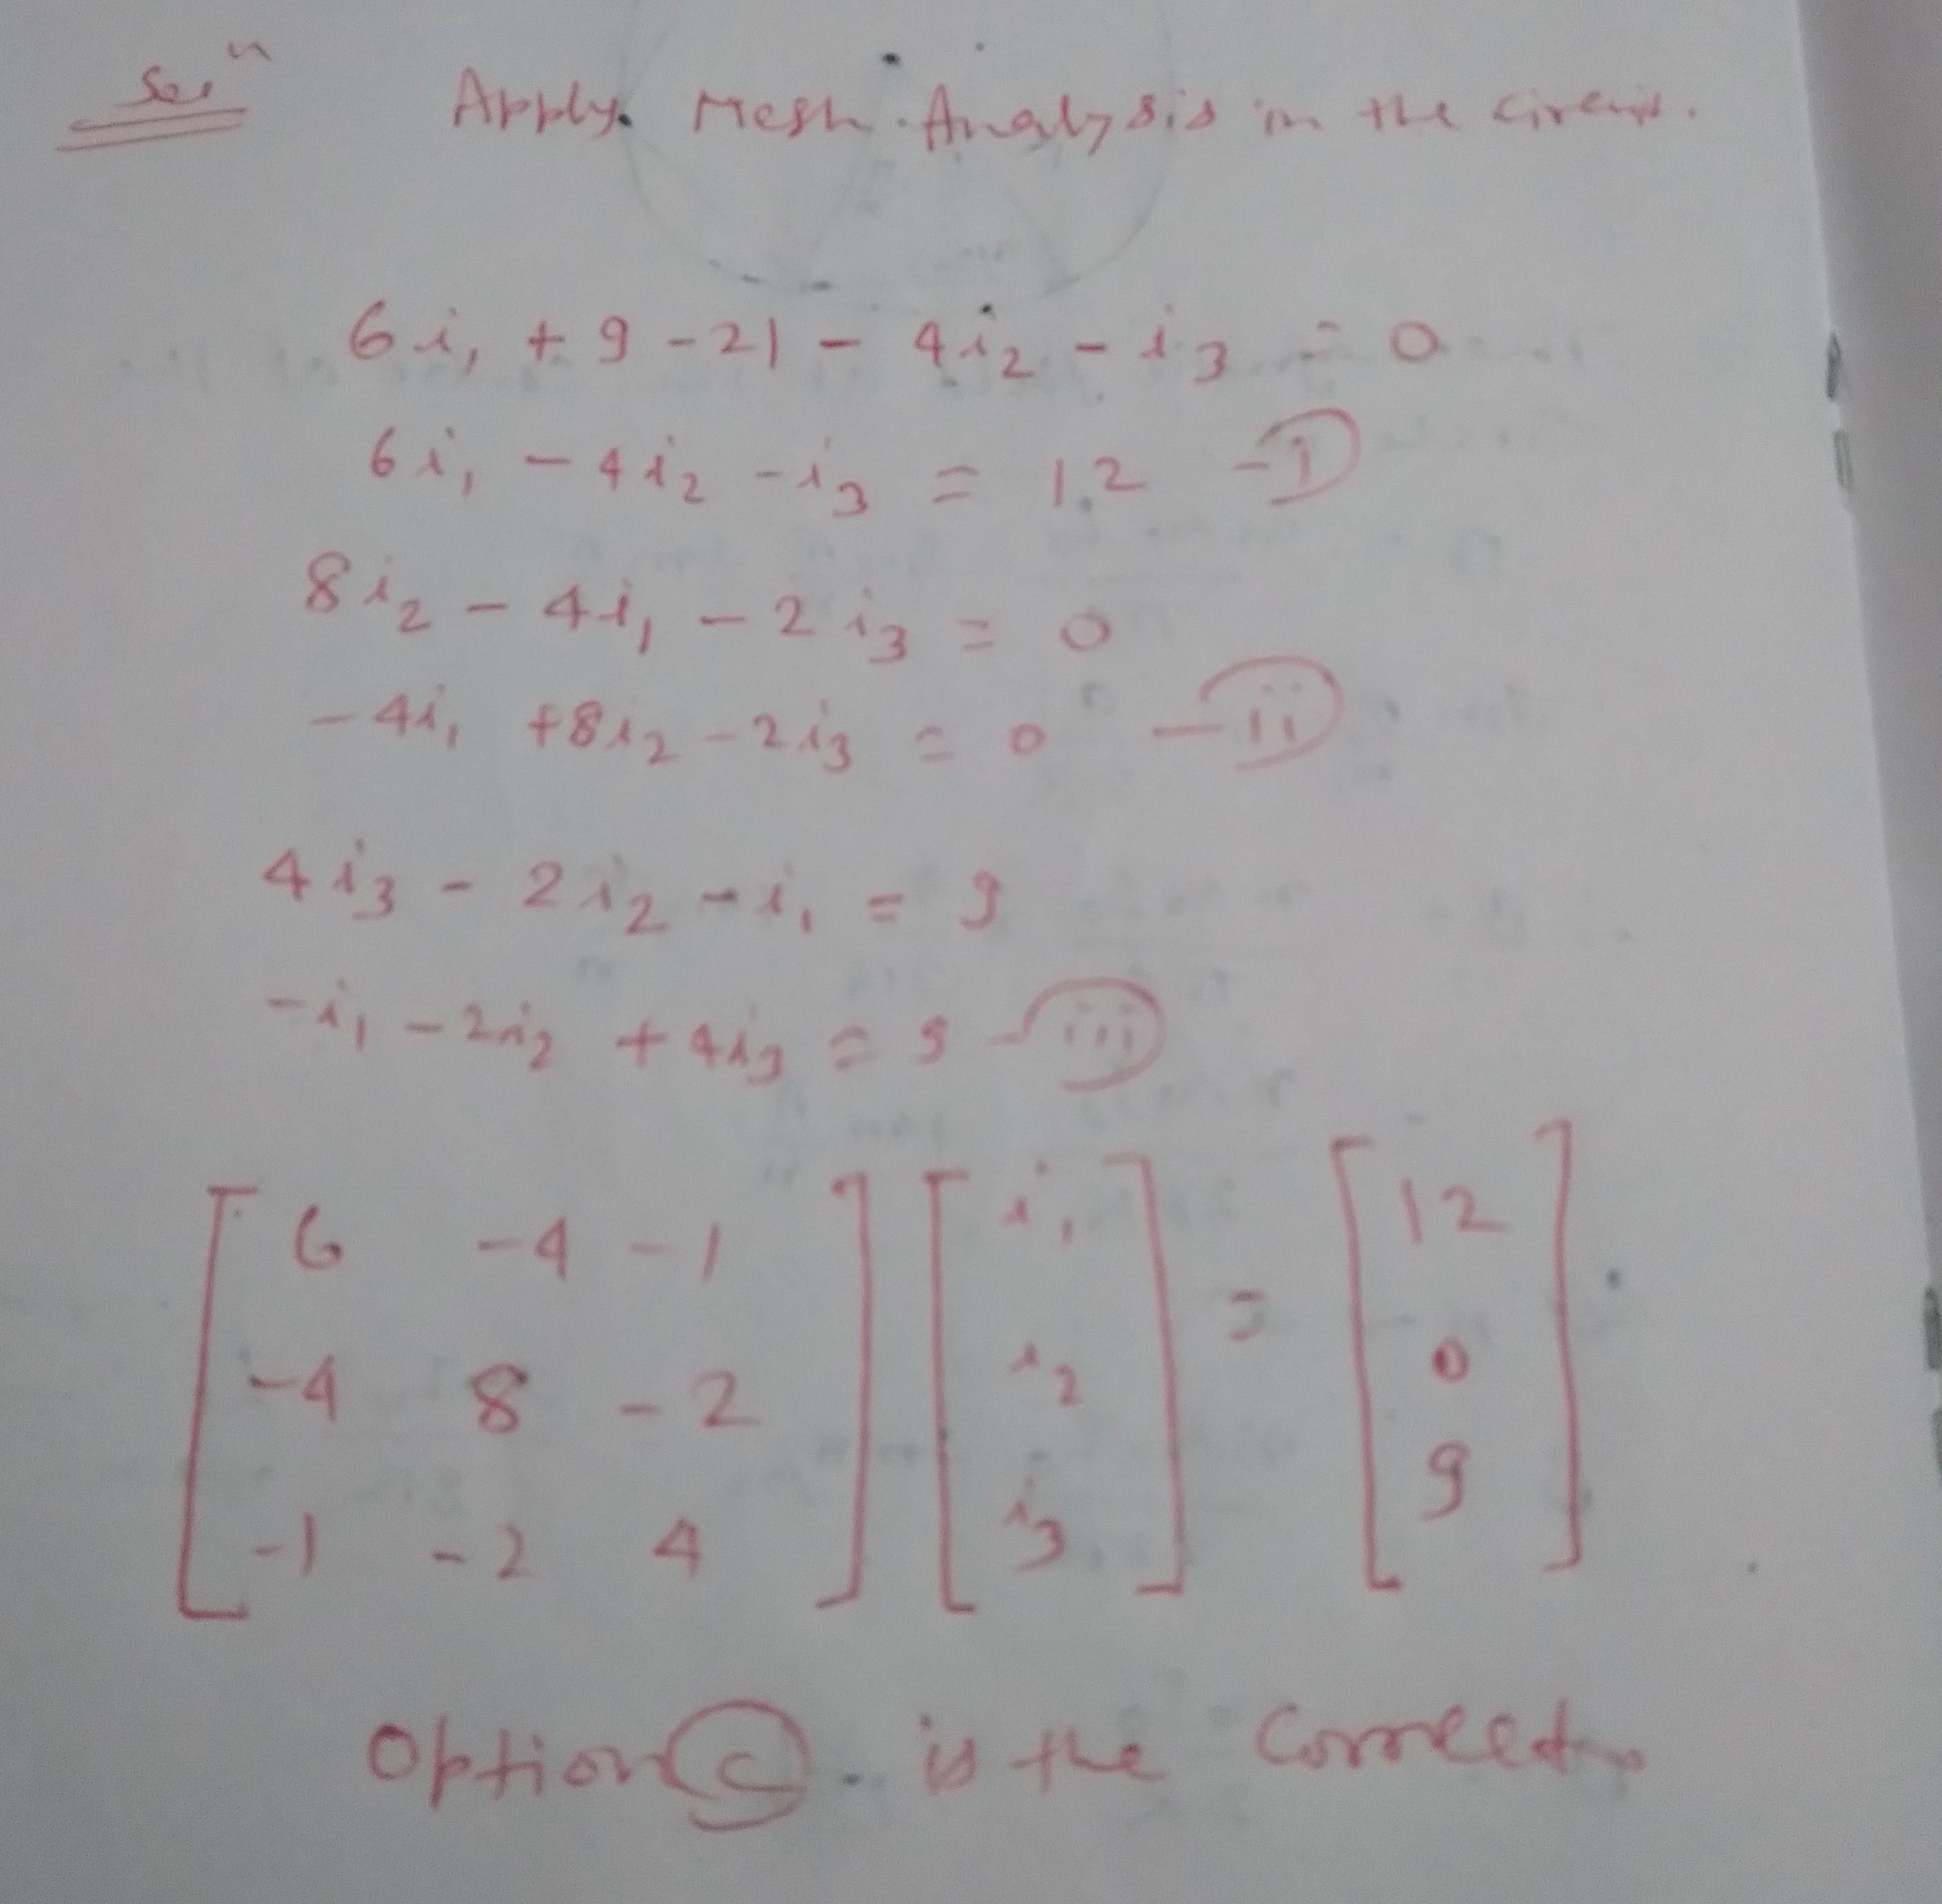 Solⁿ Apply Mesh Analysis in the circuit.
6i₁ + 9 - 21 - 4i₂ - i₃ = 0
6i₁ - 4i₂ - i₃ = 12 - (i)
8i₂ - 4i₁ - 2i₃ = 0
-4i₁ + 8i₂ - 2i₃ = 0 - (ii)
4i₃ - 2i₂ - i₁ = 9
-i₁ - 2i₂ + 4i₃ = 9 - (iii)
[ 6 -4 -1 ] [ i₁ ] = [ 12 ]
[ -4 8 -2 ] [ i₂ ] [ 0 ]
[ -1 -2 4 ] [ i₃ ] [ 9 ]
Option (C). is the correct